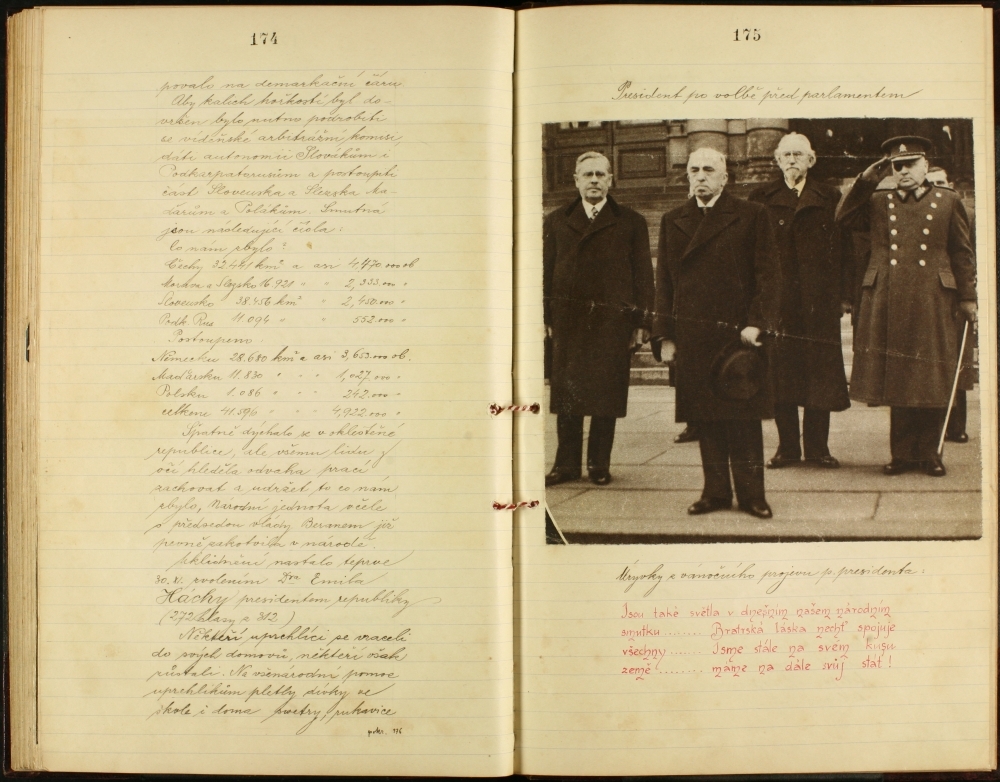 174
povalo na demarkační čáru
Aby kalich hořkosti byl do-
vršen bylo nutno podrobiti
se vídeňské arbitrážní komisi,
dáti autonomii Slovákům i
Podkarpatorusům a postoupiti
část Slovenska a Slezska Ma-
ďarům a Polákům. Smutná
jsou následující čísla:
Co nám zbylo?
Čechy 32.441 km² a asi 4,470.000 ob
Morava a Slezsko 16.921 " " 2,333.000 "
Slovensko 38.456 km² " 2,450.000 "
Podk. Rus 11.094 " " 552.000 "
Postoupeno:
Německu 28.680 km² a asi 3,653.000 ob.
Maďarsku 11.830 " " " 1,027.000 "
Polsku 1.086 " " " 242.000 "
celkem 41.596 " " " 4,922.000 "
Špatně dýchalo se v oklestěné
republice, ale všemu lidu z
očí hleděla odvaha prací
zachovat a udržet to co nám
zbylo. Národní jednota v čele
s předsedou vlády Beranem již
pevně zakotvila v národě.
Uklidnění nastalo teprve
30. XI. zvolením Dra Emila
Háchy presidentem republiky
(272 hlasy z 312)
Někteří uprchlíci se vraceli
do svých domovů, někteří však
zůstali. Na všenárodní pomoc
uprchlíkům pletly dívky ve
škole i doma svetry, rukavice
pokr. 176
175
President po volbě před parlamentem
Úryvky z vánočního projevu p. presidenta:
Jsou také světla v dnešním našem národním
smutku ........ Bratrská láska nechť spojuje
všechny ...... Jsme stále na svém kusu
země ........ máme na dále svůj stát!